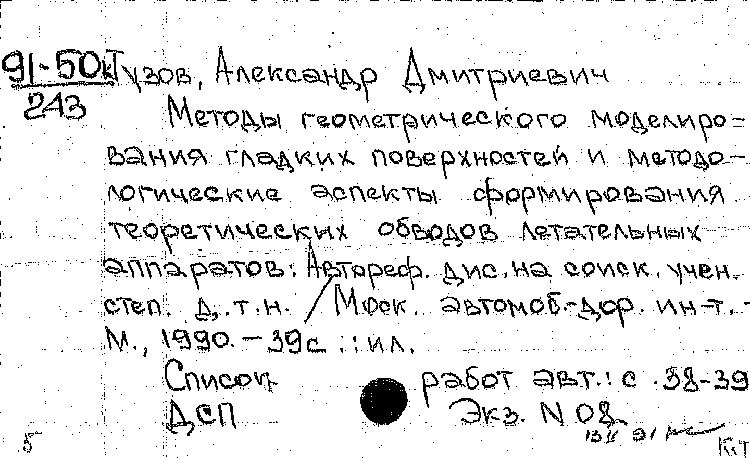 91-50 Тузов, Александр Дмитриевич
243
Методы геометрического моделиро=
вания гладких поверхностей и методо-
логические аспекты формирования
теоретических обводов летательных
аппаратов: Автореф. дис. на соиск. учен.
степ. д.т.н. / Моск. автомоб.-дор. ин-т. -
М., 1990. - 39с.: ил.
Список работ авт.: с. 38-39
ДСП Экз. N 08
5